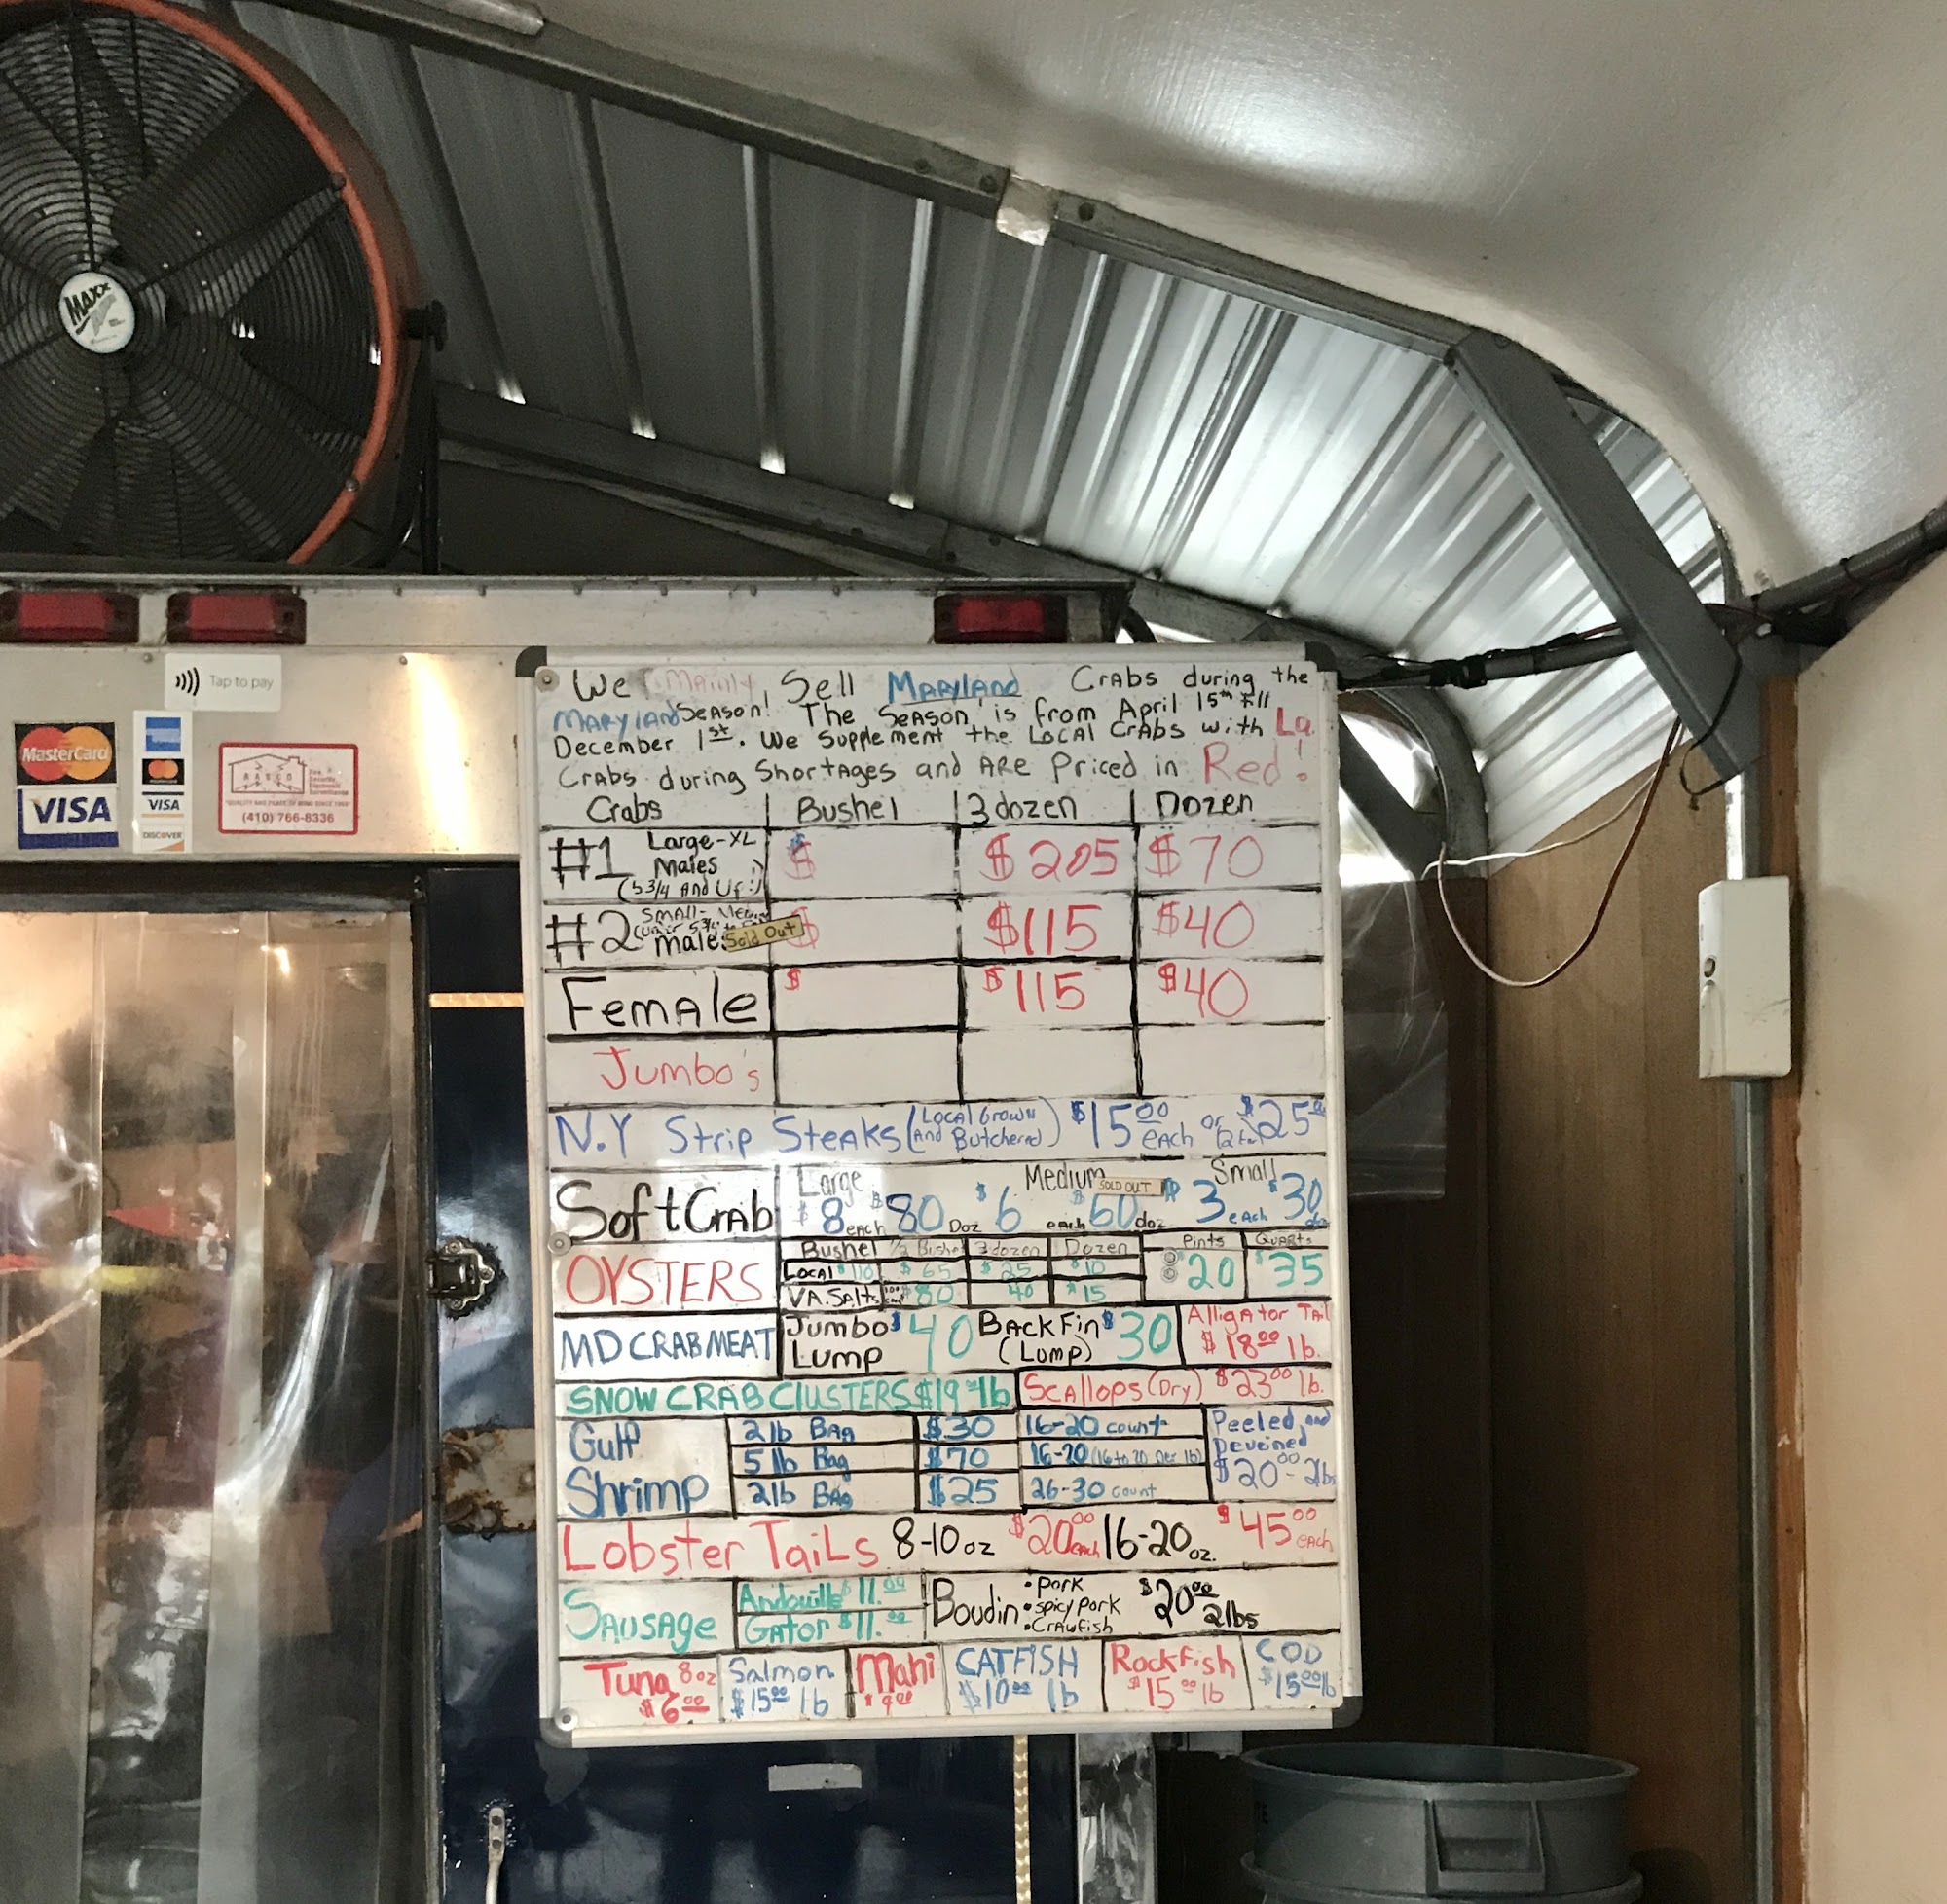 MAXX
Tap to pay
MasterCard
VISA
VISA
DISCOVER
RASCO
Fire
Security
Electronic
Surveillance
"QUALITY AND PEACE OF MIND SINCE 1959"
(410) 766-8336
We mainly Sell Maryland Crabs during the
Maryland Season! The Season is from April 15th till
December 1st. We Supplement the Local Crabs with La.
Crabs during Shortages and Are Priced in Red!
Crabs Bushel 3 dozen Dozen
#1 Large-XL Males (5 3/4 And Up!) $ $205 $70
#2 Small- Males Sold Out $ $115 $40
Female $ $115 $40
Jumbo's
N.Y Strip Steaks (Local Grown And Butchered) $15.00 each or $25
Soft Crab Large $8 each $80 Doz Medium SOLD OUT $6 each $60 doz Small $3 each $30 doz
OYSTERS Bushel 1/2 Bushel 3 dozen Dozen Pints Quarts
Local $110 $65 $25 $10 $20 $35
VA. Salts $80 40 $15
MD CRABMEAT Jumbo Lump $40 BackFin (Lump) $30 Alligator Tail $18.00 lb.
SNOW CRAB CLUSTERS $19 lb Scallops (Dry) $23.00 lb.
Gulf Shrimp 2lb Bag $30 16-20 count
5 lb Bag $70 16-20 (16 to 20 per lb)
2lb Bag $25 26-30 count
Peeled and Deveined $20.00 - 2lbs
Lobster Tails 8-10 oz $20.00 each 16-20 oz. $45.00 each
Sausage Andouille $11.00
Gator $11.00
Boudin • Pork • Spicy Pork • Crawfish $20.00 2lbs
Tuna 8oz $6.00 Salmon $15.00 lb Mahi CATFISH $10.00 lb Rockfish $15.00 lb COD $15.00 lb